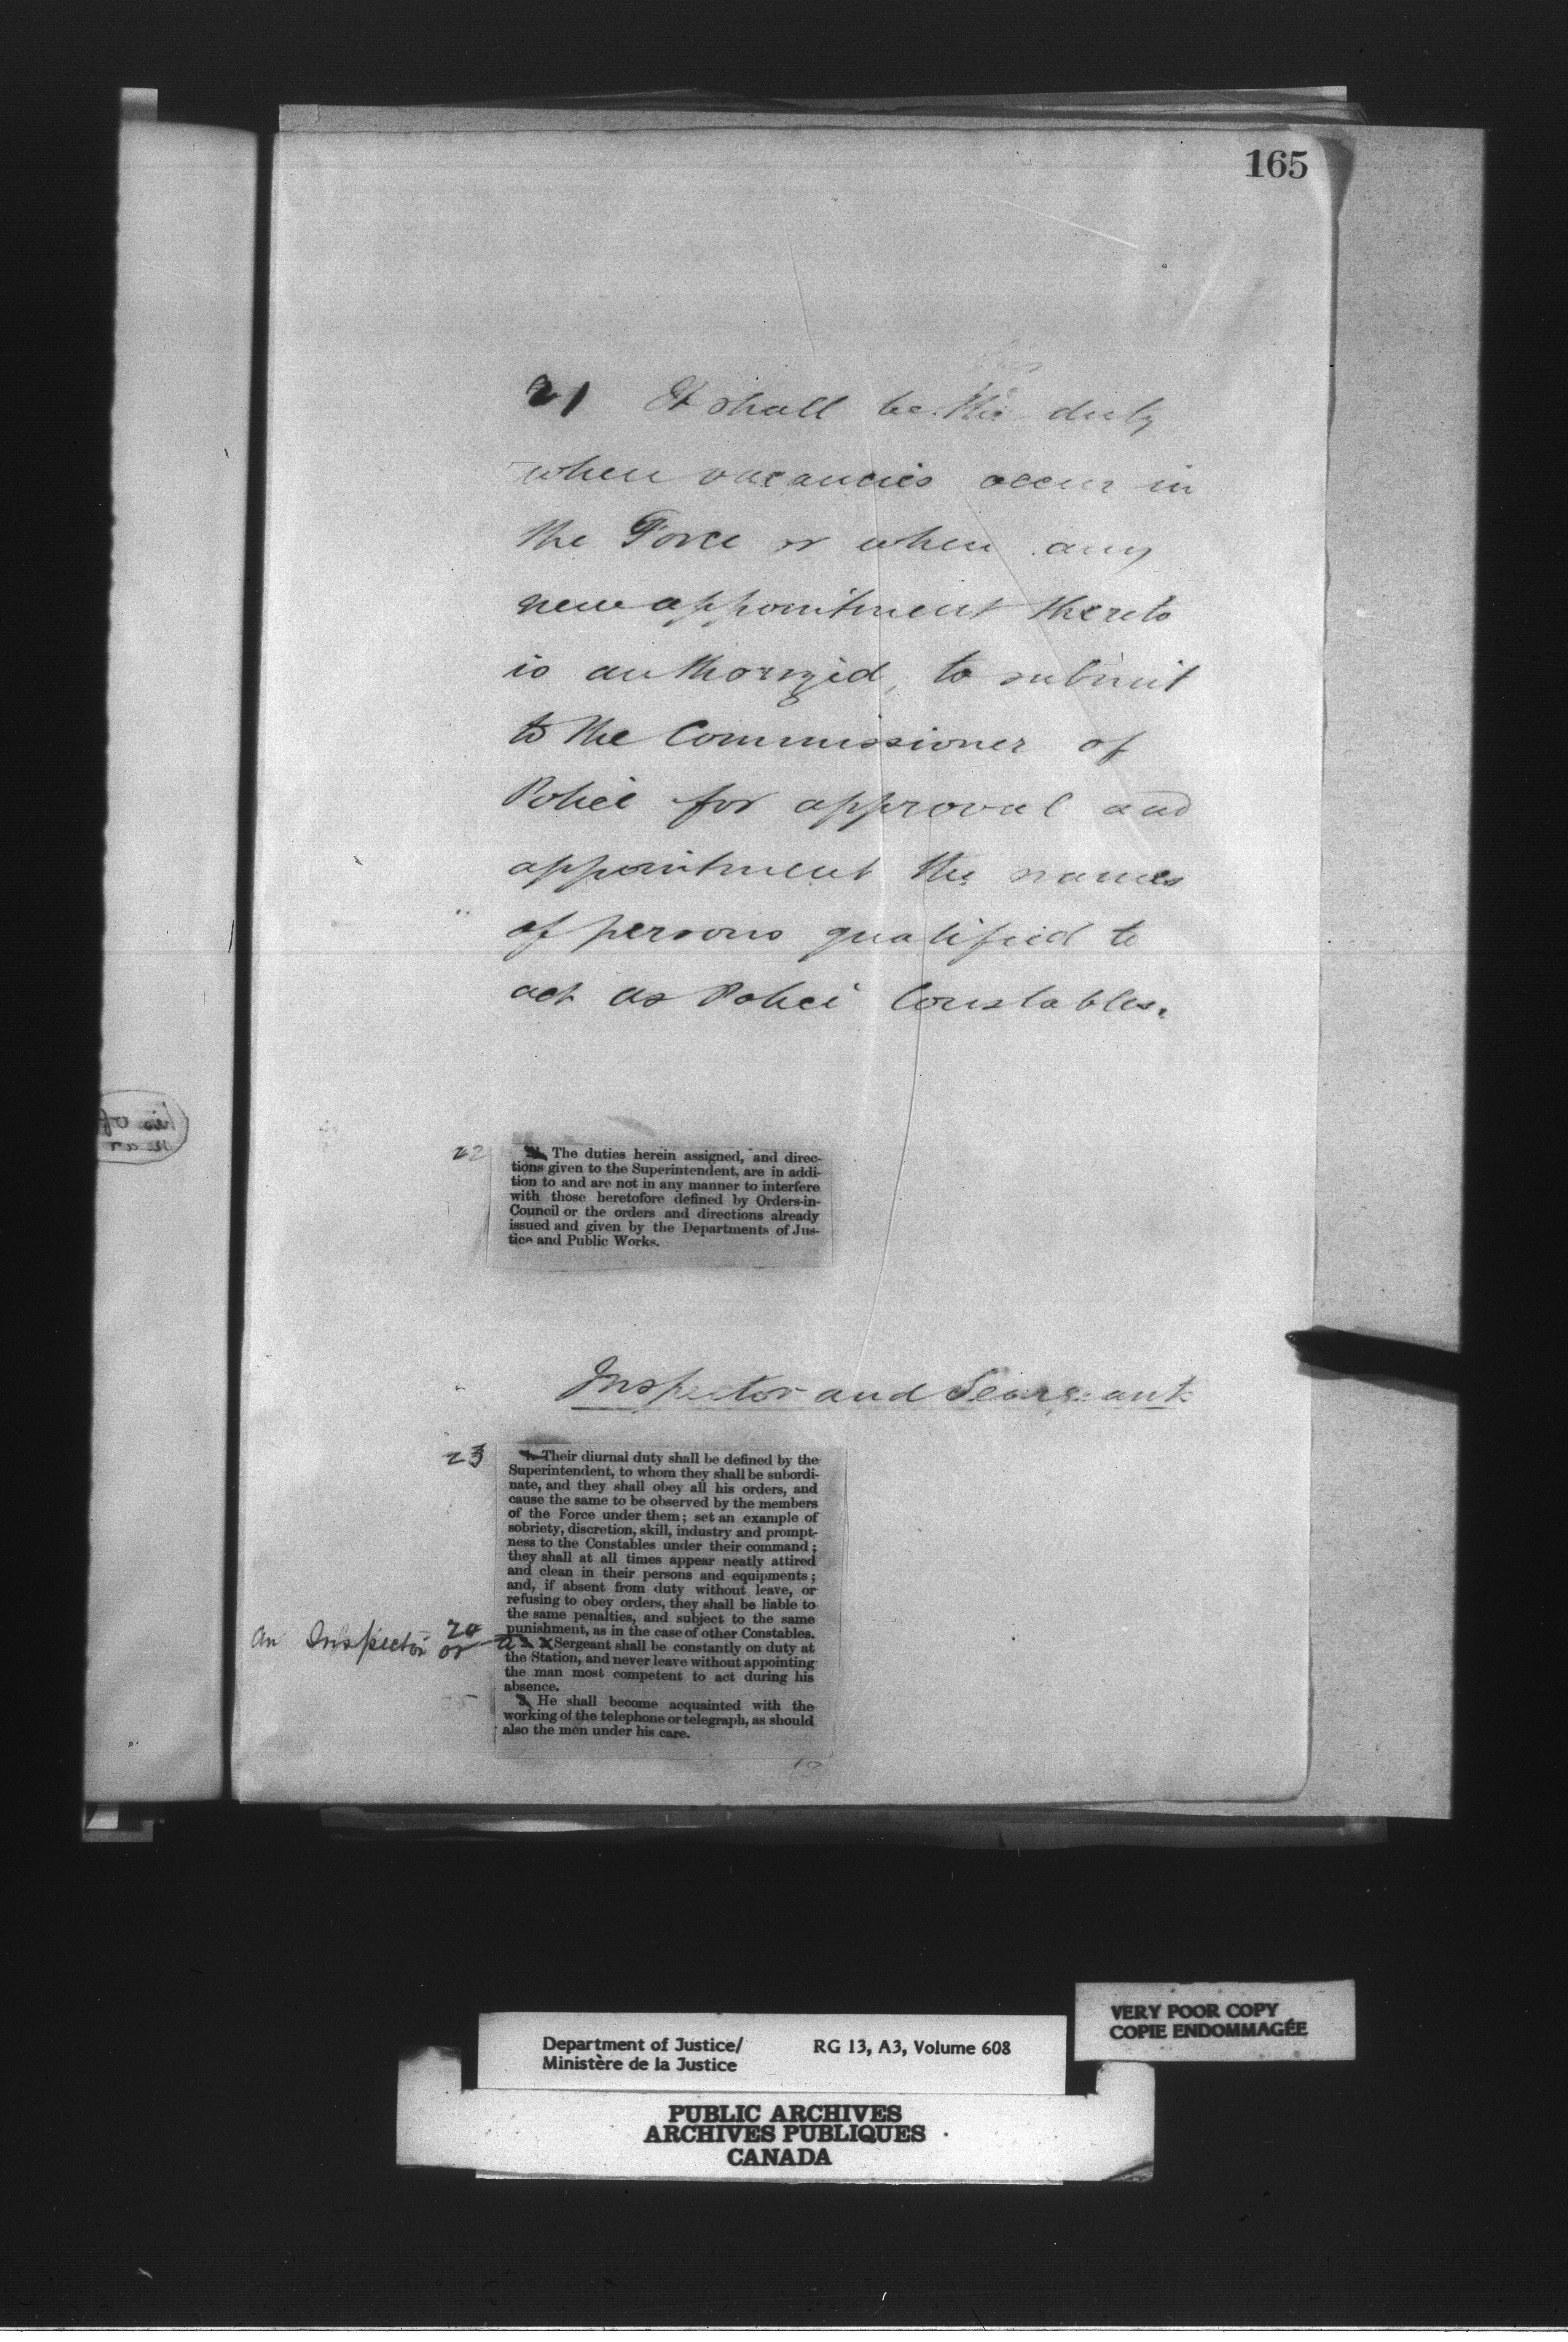 165
21 It shall be the duty
when vacancies occur in
the Force or when any
new appointment thereto
is authorized, to submit
to the Commissioner of
Police for approval and
appointment the names
of persons qualified to
act as Police Constables.
22
The duties herein assigned, and direc-
tions given to the Superintendent, are in addi-
tion to and are not in any manner to interfere
with those heretofore defined by Orders-in-
Council or the orders and directions already
issued and given by the Departments of Jus-
tice and Public Works.
Inspector and Seargeant
23
1. Their diurnal duty shall be defined by the
Superintendent, to whom they shall be subordi-
nate, and they shall obey all his orders, and
cause the same to be observed by the members
of the Force under them; set an example of
sobriety, discretion, skill, industry and prompt-
ness to the Constables under their command;
they shall at all times appear neatly attired
and clean in their persons and equipments;
and, if absent from duty without leave, or
refusing to obey orders, they shall be liable to
the same penalties, and subject to the same
punishment, as in the case of other Constables.
24
An Inspector or a Sergeant shall be constantly on duty at
the Station, and never leave without appointing
the man most competent to act during his
absence.
3. He shall become acquainted with the
working of the telephone or telegraph, as should
also the men under his care.
VERY POOR COPY
COPIE ENDOMMAGÉE
Department of Justice/ RG 13, A3, Volume 608
Ministère de la Justice
PUBLIC ARCHIVES
ARCHIVES PUBLIQUES
CANADA